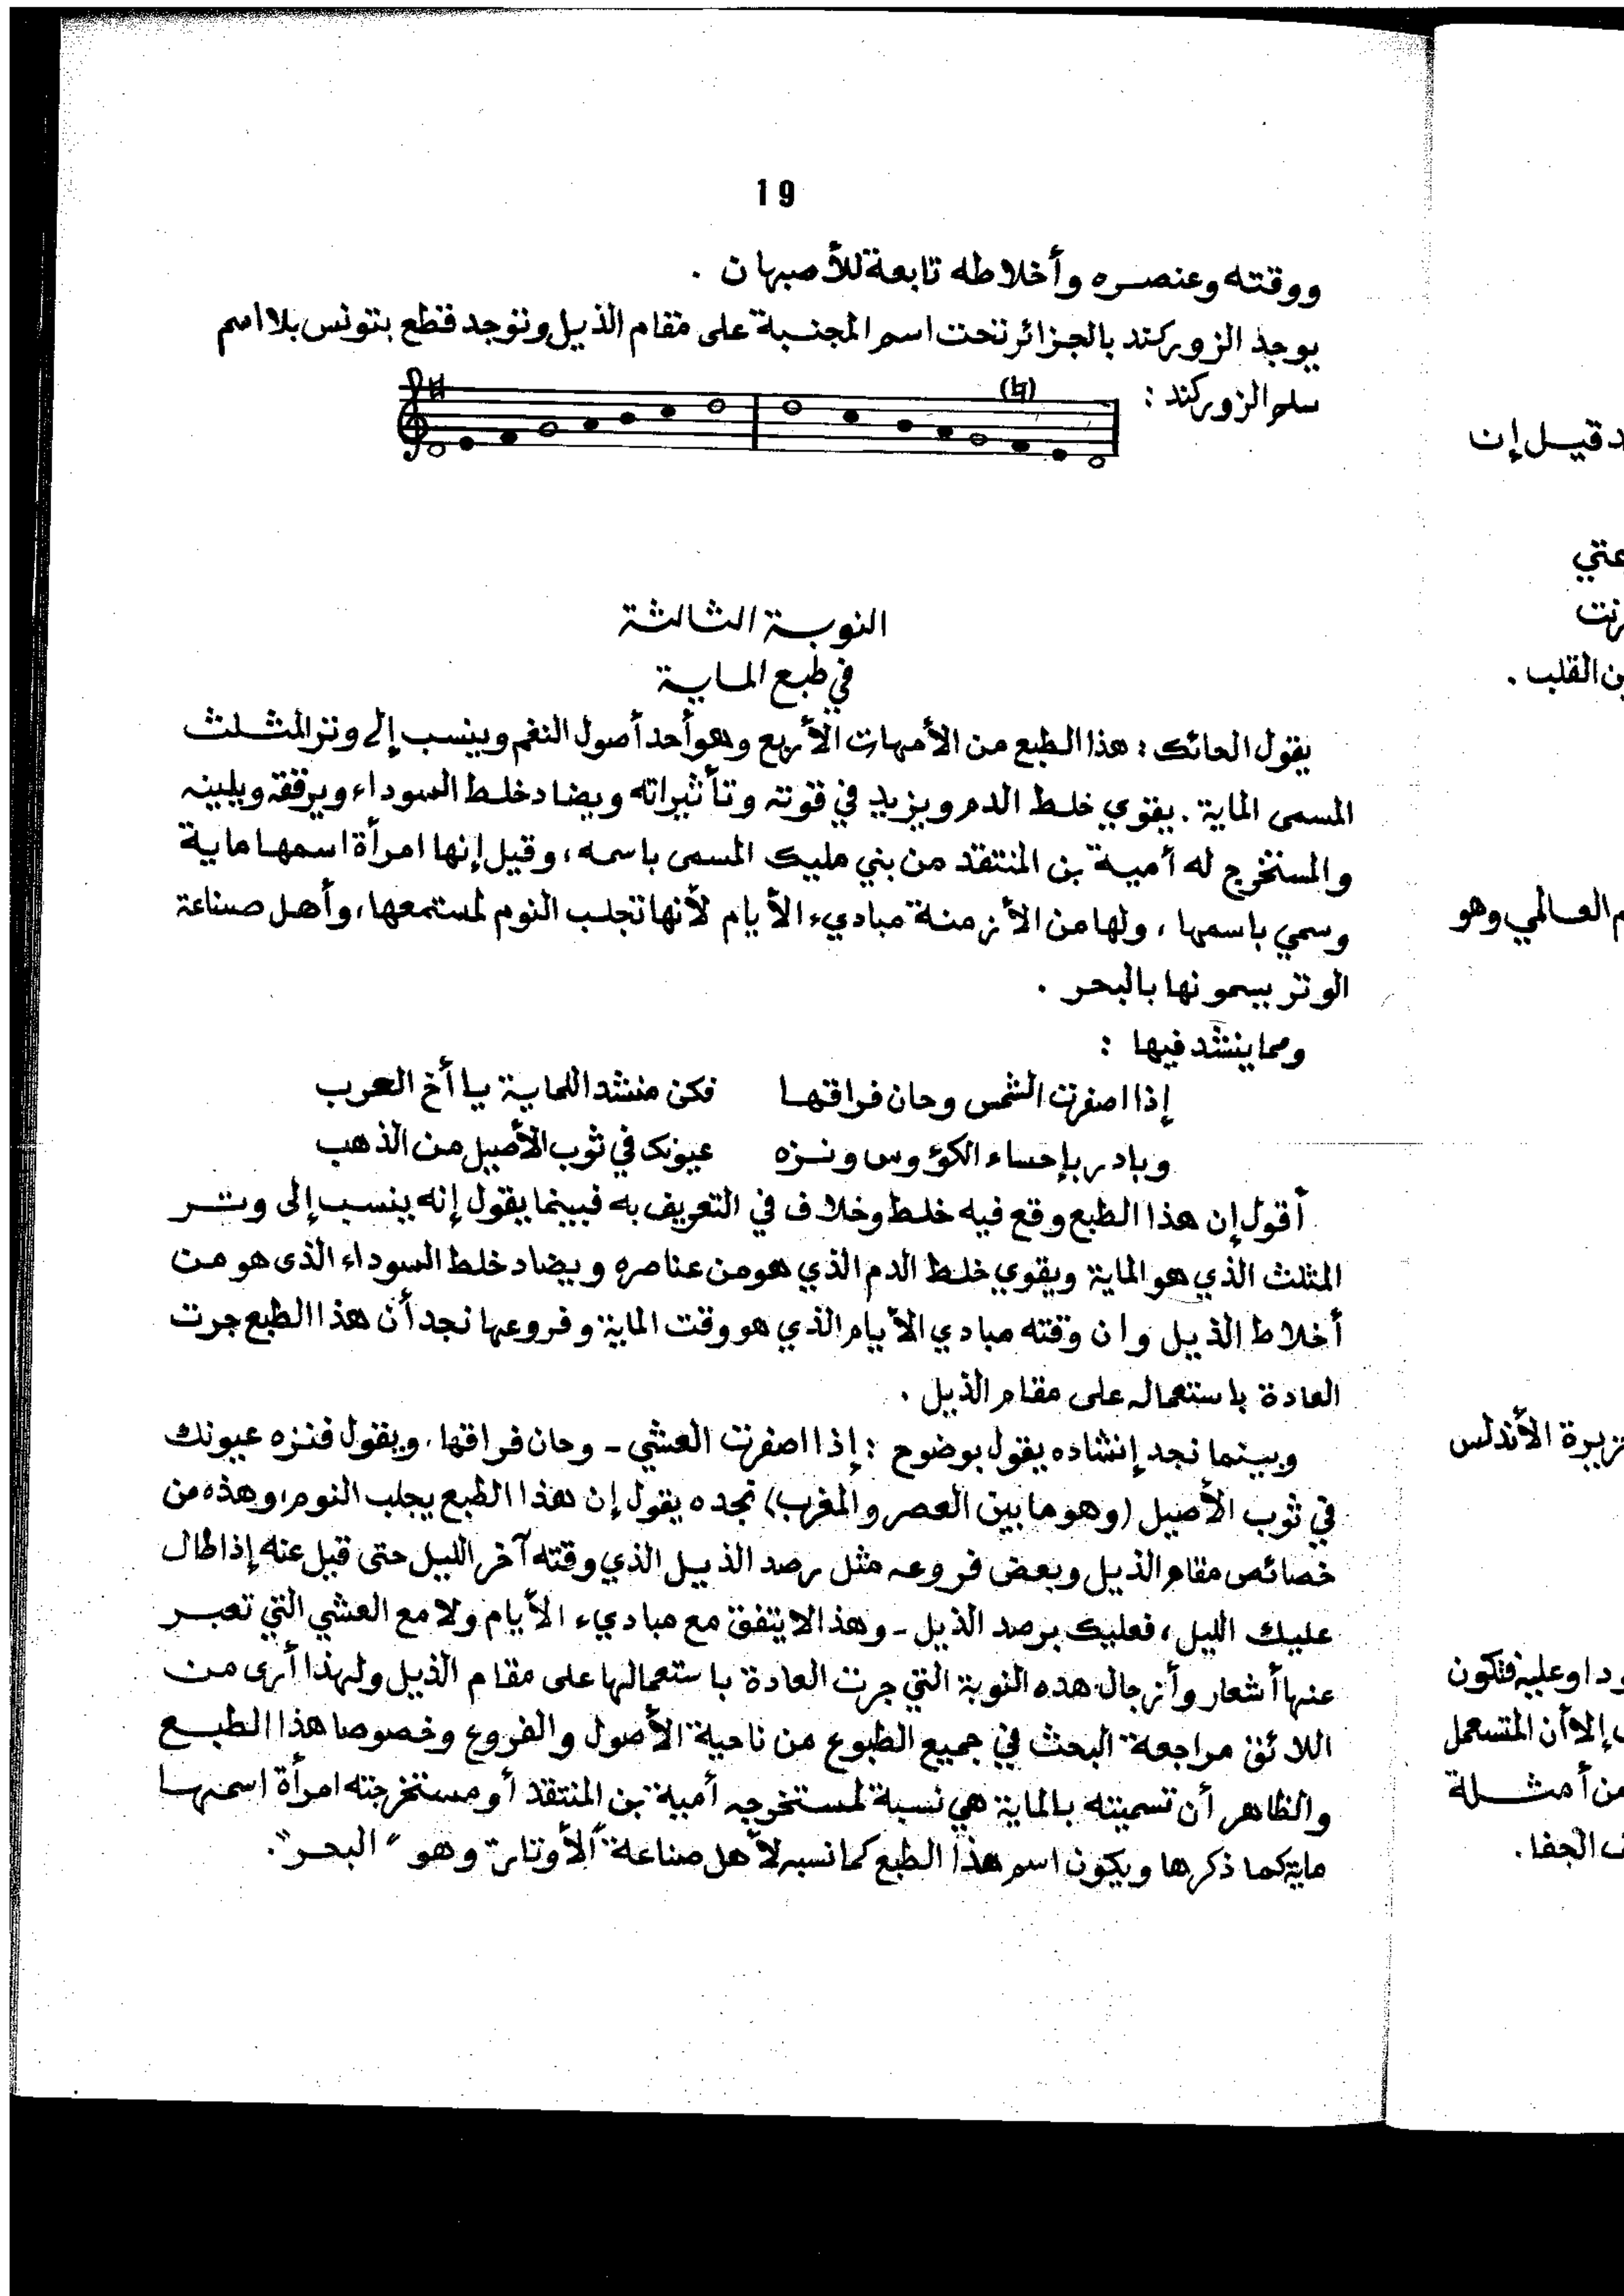 19
ووقته وعنصره وأخلاطه تابعة للأصبهان .
يوجد الزوركند بالجزائر تحت اسم المجنبة على مقام الذيل وتوجد قطع بتونس بلا اسم
سلم الزوركند :
(♮)
النوبة الثالثة
في طبع الماية
يقول الحائك : هذا الطبع من الأمهات الأربع وهو أحد أصول النغم وينسب إلى وتر المثلث
المسمى الماية . يقوي خلط الدم ويزيد في قوته وتأثيراته ويضاد خلط السوداء ويرققه ويلينه
والمستخرج له أمية بن المنتقد من بني مليك المسمى باسمه ، وقيل إنها امرأة اسمها ماية
وسمي باسمها ، ولها من الأزمنة مباديء الأيام لأنها تجلب النوم لمستمعها ، وأهل صناعة
الوتر يسمونها بالبحر .
ومما ينشد فيها :
إذا اصفرت الشمس وحان فراقها فكن منشد اللماية يا أخ العرب
وبادر بإحساء الكؤوس ونزه عيونك في ثوب الأصيل من الذهب
أقول إن هذا الطبع وقع فيه خلط وخلاف في التعريف به فبينما يقول إنه ينسب إلى وتر
المثلث الذي هو الماية ويقوي خلط الدم الذي هو من عناصره ويضاد خلط السوداء الذى هو من
أخلاط الذيل وان وقته مبادي الأيام الذي هو وقت الماية وفروعها نجد أن هذا الطبع جرت
العادة باستعماله على مقام الذيل .
وبينما نجد إنشاده يقول بوضوح : إذا اصفرت العشي - وحان فراقها ، ويقول فنزه عيونك
في ثوب الأصيل (وهو ما بين العصر والمغرب) نجده يقول إن هذا الطبع يجلب النوم ، وهذه من
خصائص مقام الذيل وبعض فروعه مثل رصد الذيل الذي وقته آخر الليل حتى قيل عنه إذا طال
عليك الليل ، فعليك برصد الذيل - وهذا لا يتفق مع مباديء الأيام ولا مع العشي التي تعبر
عنها أشعار وأزجال هذه النوبة التي جرت العادة باستعمالها على مقام الذيل ولهذا أرى من
اللائق مراجعة البحث في جميع الطبوع من ناحية الأصول والفروع وخصوصا هذا الطبع
والظاهر أن تسميته بالماية هي نسبة لمستخرجه أمية بن المنتقد أو مستخرجته امرأة اسمها
ماية كما ذكرها ويكون اسم هذا الطبع كما نسبه لأهل صناعة الأوتار وهو "البحر".
د قيل إن
ن القلب .
م العالمي وهو
زيرة الأندلس
ودا وعليه فتكون
إلا أن المتسعمل
من أمثلة
ف الجفا .